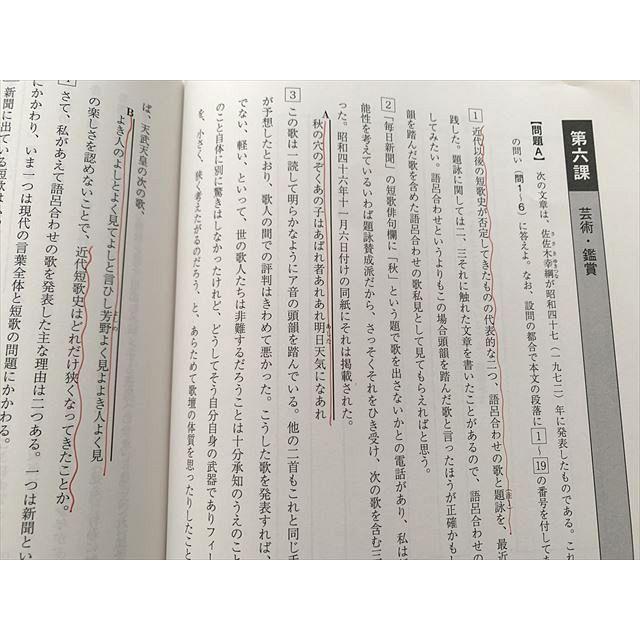 第六課　芸術・鑑賞
【問題A】　次の文章は、佐佐木幸綱が昭和四十七（一九七二）年に発表したものである。これ
の問い（問1～6）に答えよ。なお、設問の都合で本文の段落に1～19の番号を付してあ
1　近代以後の短歌史が否定してきたものの代表的な二つ、語呂合わせの歌と題詠を、最近
践した。題詠に関しては二、三それに触れた文章を書いたことがあるので、語呂合わせの
してみたい。語呂合わせというよりもこの場合頭韻を踏んだ歌と言ったほうが正確かもし
韻を踏んだ歌を含めた語呂合わせの歌私見として見てもらえればと思う。
2　「毎日新聞」の短歌俳句欄に「秋」という題で歌を出さないかとの電話があり、私は
能性を考えているいわば題詠賛成派だから、さっそくそれをひき受け、次の歌を含む三
った。昭和四十六年十一月六日付けの同紙にそれは掲載された。
A　秋の穴のぞくあの子はあばれ者あれあれ明日天気になあれ
3　この歌は一読して明らかなようにア音の頭韻を踏んでいる。他の二首もこれと同じ手
が予想したとおり、歌人の間での評判はきわめて悪かった。こうした歌を発表すれば、
でない、軽い、といって、世の歌人たちは非難するだろうことは十分承知のうえのこと
のこと自体に別に驚きはしなかったけれど、どうしてそう自分自身の武器でありフィー
を、小さく、狭く考えたがるのだろう、と、あらためて歌壇の体質を思ったりしたこと
ば、天武天皇の次の歌、
B　よき人のよしとよく見てよしと言ひし芳野よく見よよき人よく見
の楽しさを認めないことで、近代短歌史はどれだけ狭くなってきたことか。
さて、私があえて語呂合わせの歌を発表した主な理由は二つある。一つは新聞とい
にかかわり、いま一つは現代の言葉全体と短歌の問題にかかわる。
新聞に出ている短歌は、